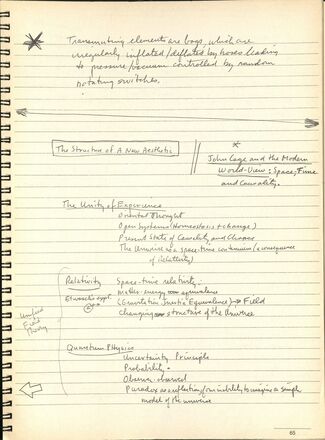 Transmuting elements are bags, which are
irregularly inflated/deflated by hoses leading
to pressure/vacuum controlled by random
rotating switches.
The Structure of A New Aesthetic
John Cage and the Modern
World-View: Space, Time
and Causality.
The Unity of Experience
Oriental Thought
Open Systems (Homeostasis + change)
Present State of Causality and Chance
The Universe as a space-time continuum (a consequence
of relativity)
Relativity Space-time relativity.
Matter-energy equivalence
(Gravitation Inertia Equivalence) → Field
Changing structure of the Universe
Unified
Field
Theory
Quantum Physics
Uncertainty Principle
Probability.
Observer-observed
Paradox as reflecting our inability to imagine a single
model of the universe
65